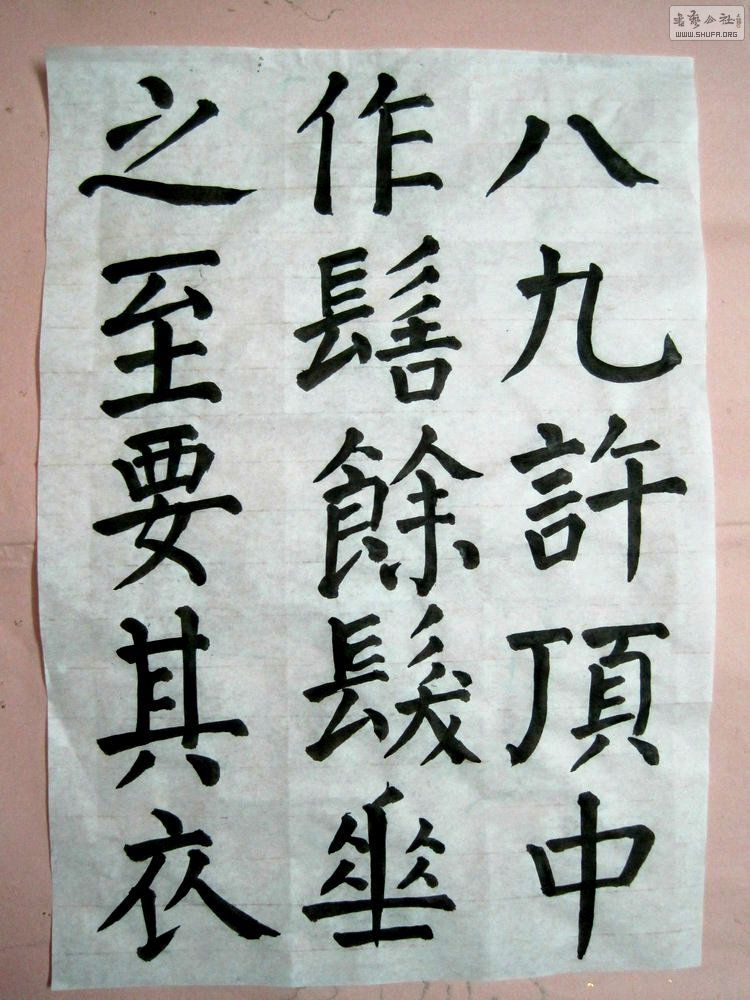 八九許頂中
作髻餘髮垂
之至要其衣
書藝公社
WWW.SHUFA.ORG